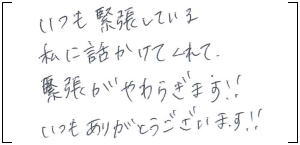 いつも緊張している
私に話かけてくれて.
緊張がやわらぎます!!
いつもありがとうございます!!